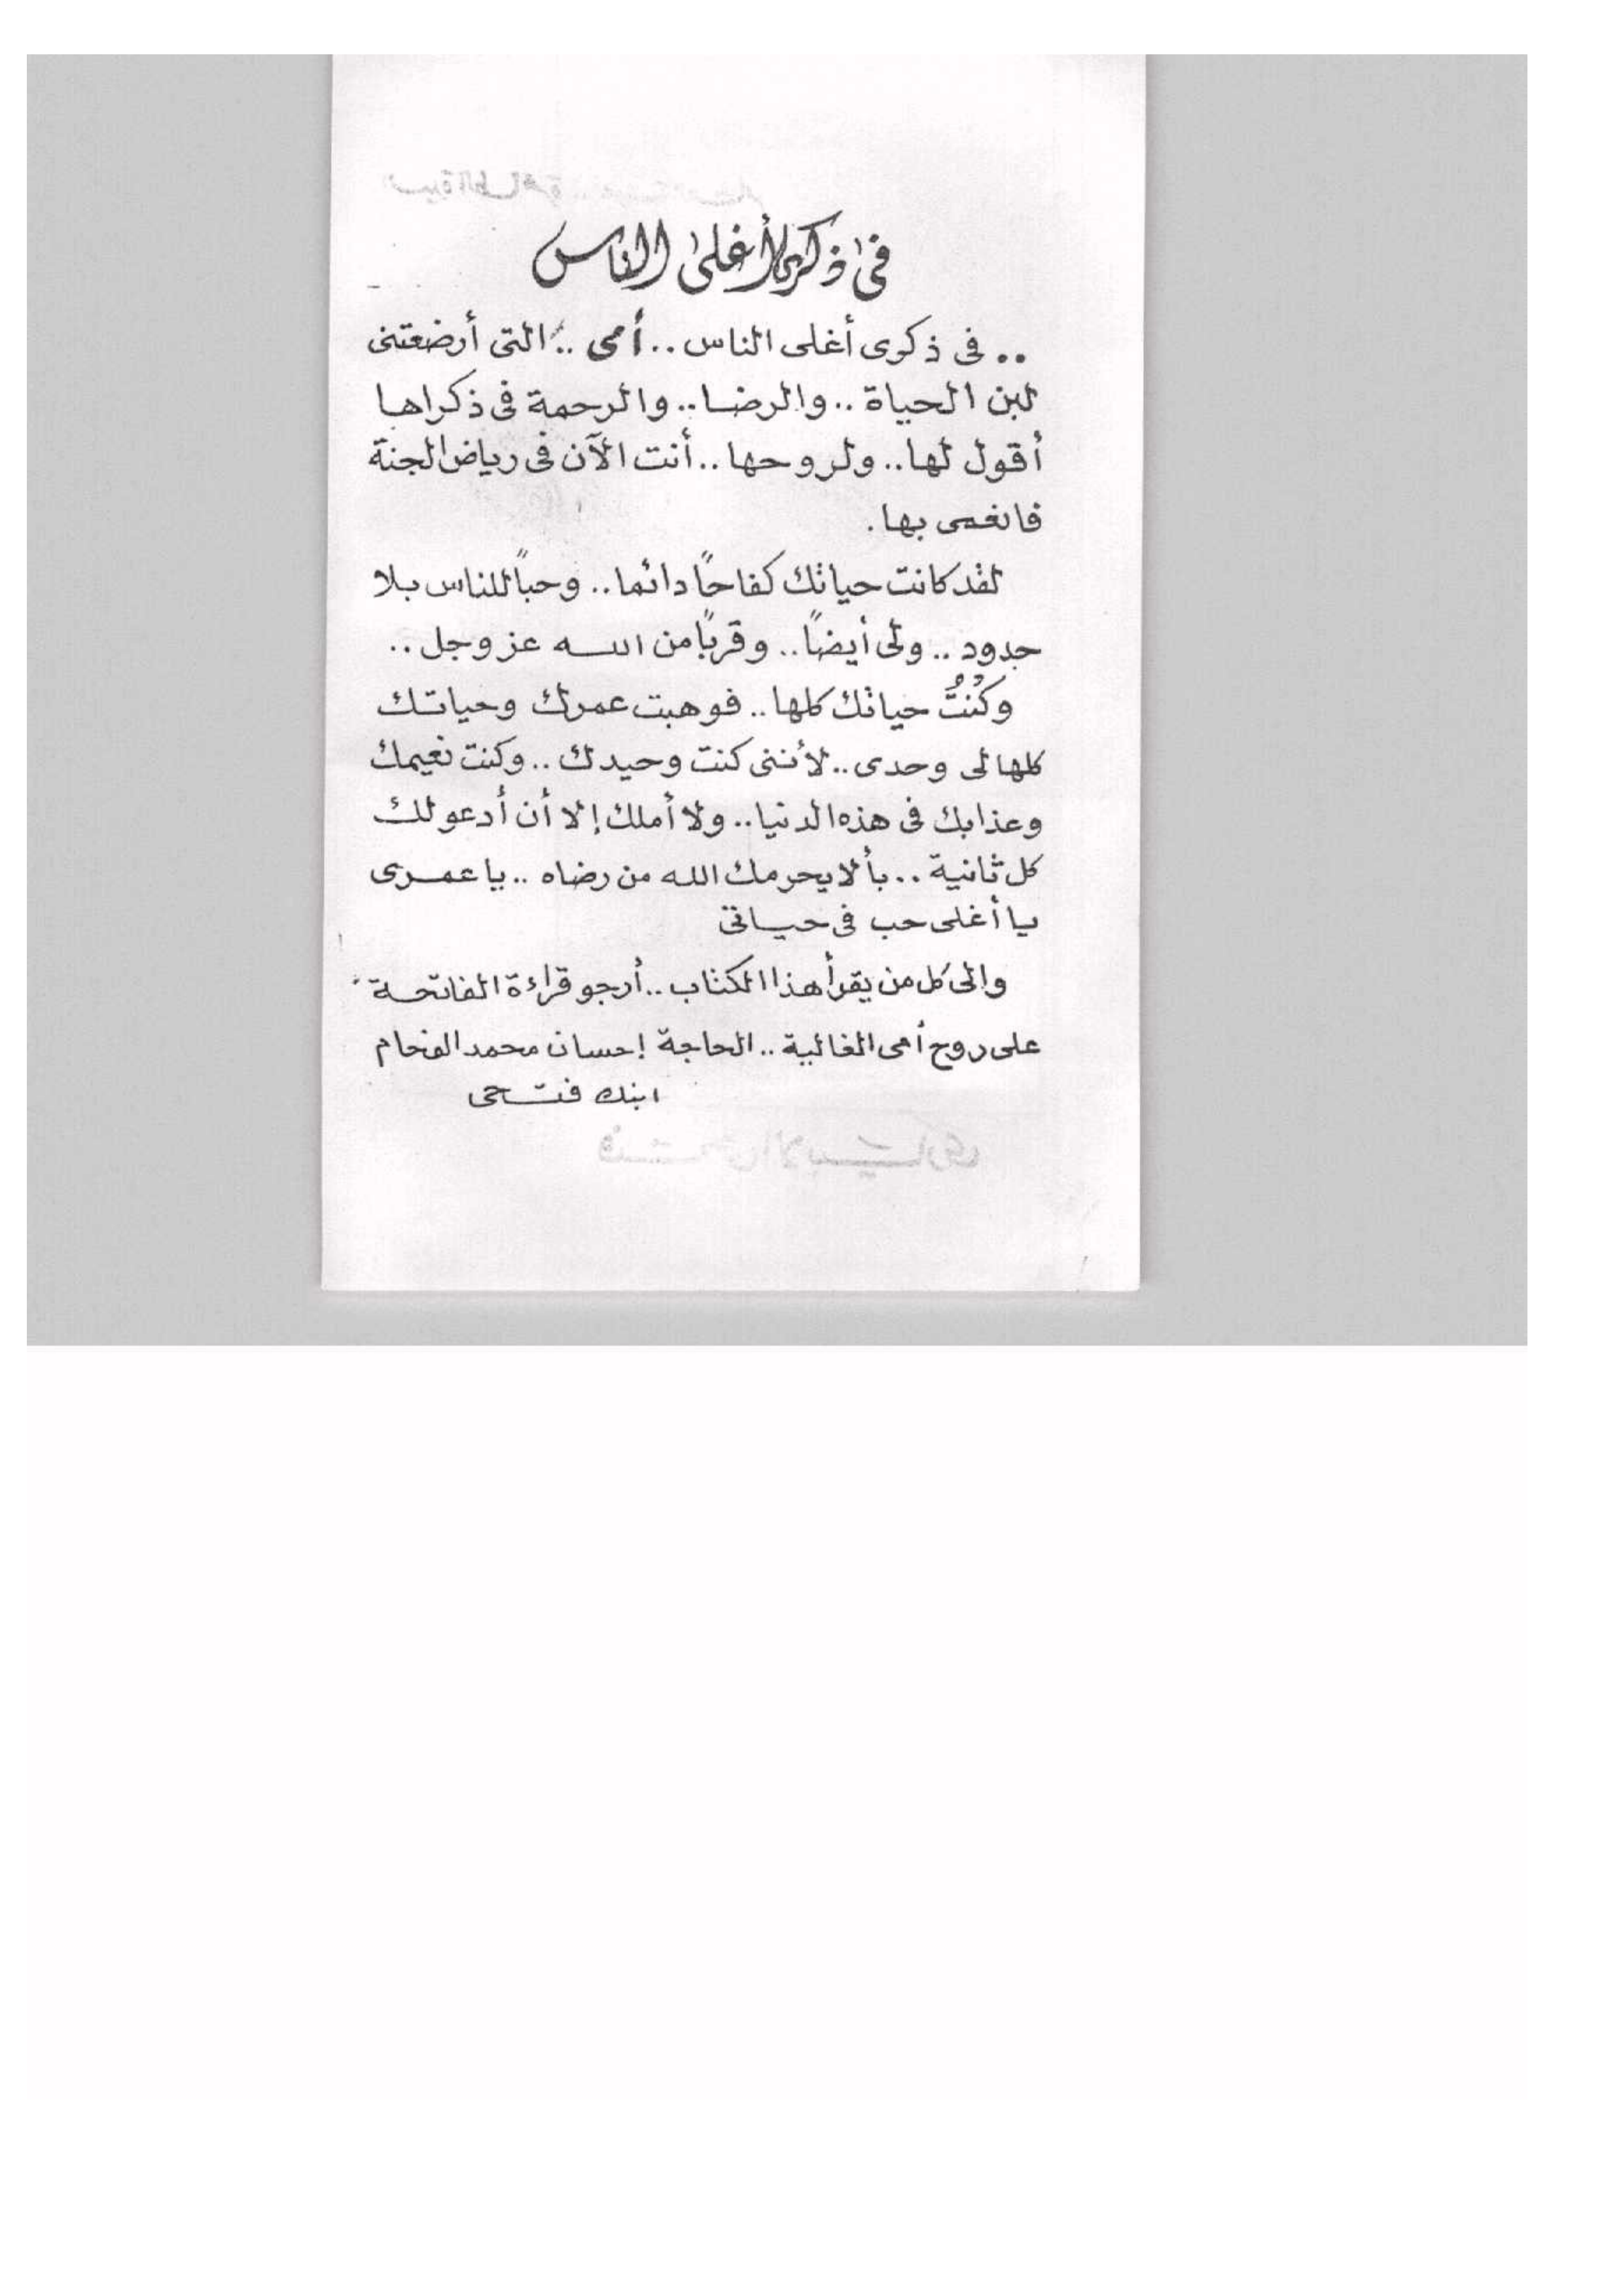 فى ذكرى أغلى الناس
.. فى ذكرى أغلى الناس .. أمى .. التى أرضعتنى
لبن الحياة .. والرضا .. والرحمة فى ذكراها
أقول لها .. ولروحها .. أنت الآن فى رياض الجنة
فانعمى بها .
لقد كانت حياتك كفاحًا دائما .. وحبًا للناس بلا
حدود .. ولى أيضًا .. وقربًا من الله عز وجل ..
وكُنتُ حياتك كلها .. فوهبت عمرك وحياتك
كلها لى وحدى .. لأننى كنت وحيدك .. وكنت نعيمك
وعذابك فى هذه الدنيا .. ولا أملك إلا أن أدعو لك
كل ثانية .. بألا يحرمك الله من رضاه .. يا عمرى
يا أغلى حب فى حياتى
وإلى كل من يقرأ هذا الكتاب .. أرجو قراءة الفاتحة
على روح أمى الغالية .. الحاجة إحسان محمد الفحام
ابنك فتحى